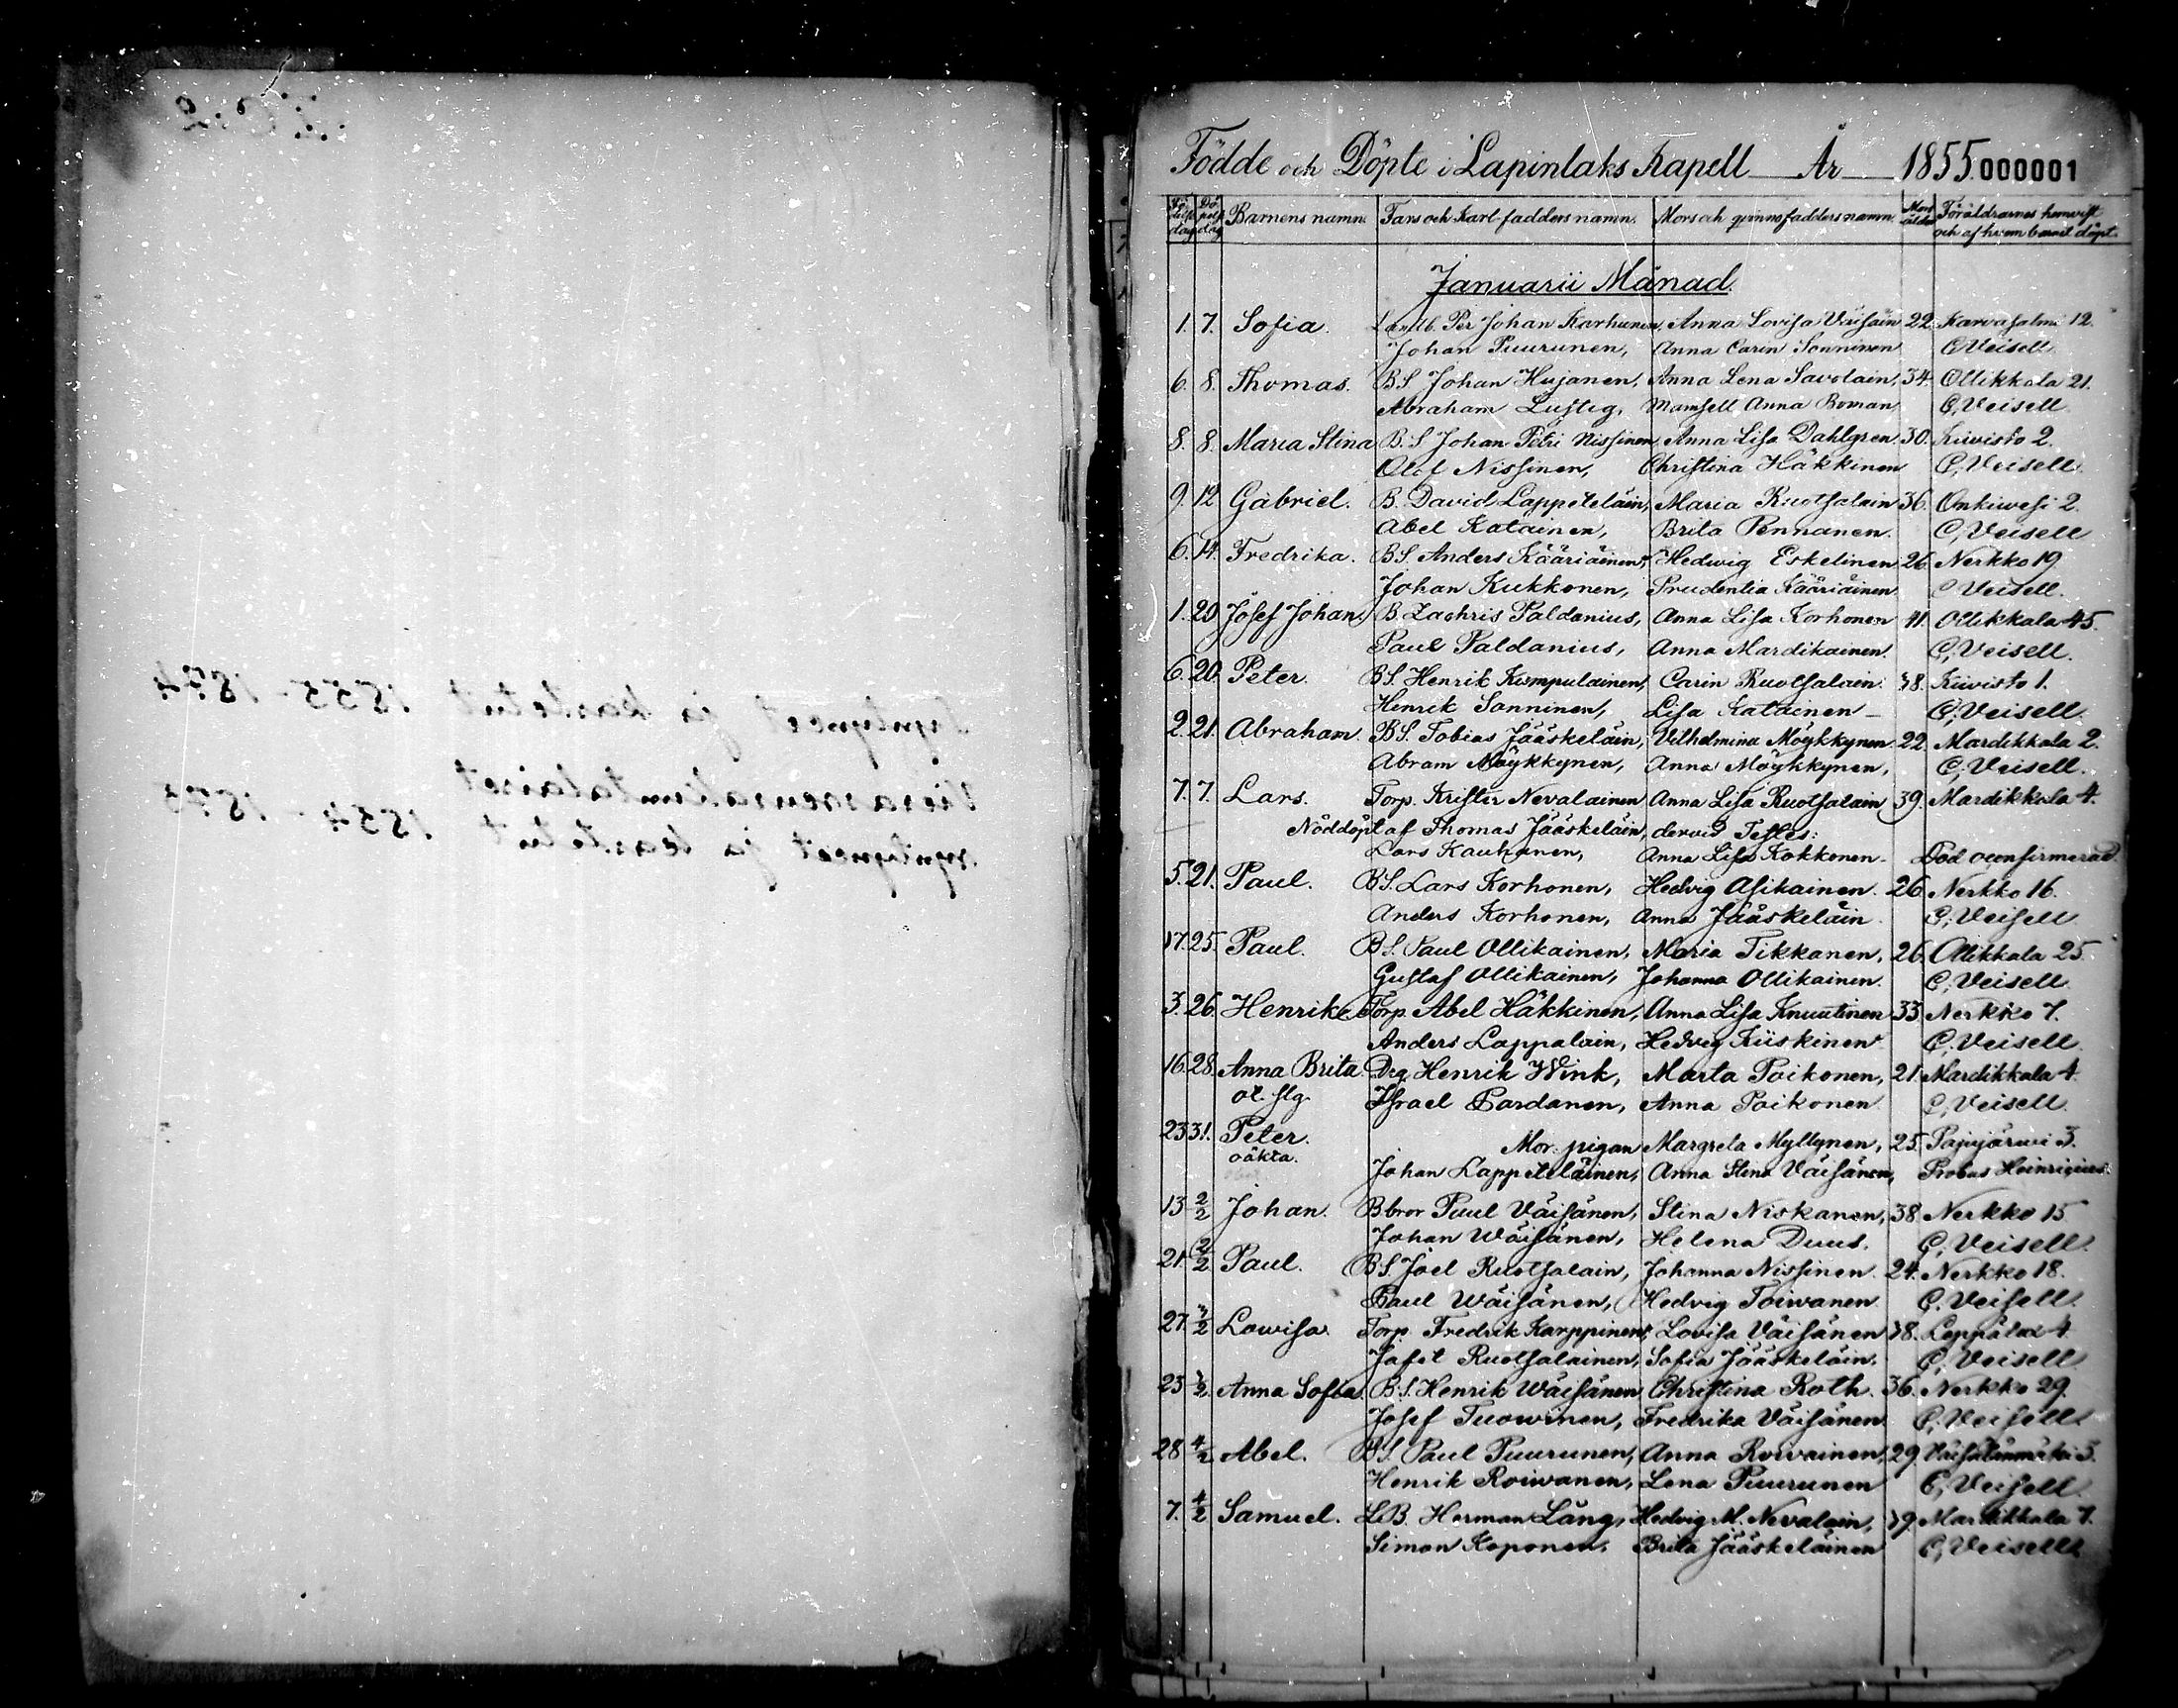 Födde och Döpte i Lapinlaks Kapell År 1855. 000001
Födelse dag Döpelse dag Barnens namn. Fars och Karl-fadders namn. Mors och qvinnofadders namn. Mors ålder Föräldrarnes hemvist
och af hvem barnet döpt.
Januarii Månad
1. 7. Sofia. Landb. Per Johan Karhunen, Anna Lovisa Väisäin 22. Karvasalmi 12.
Johan Puurunen, Anna Carin Sonninen C. Veisell
6. 8. Thomas. BS Johan Hujanen, Anna Lena Savolain, 34. Ollikkala 21.
Abraham Lustig, Mamsell Anna Boman C, Veisell.
8. 8. Maria Stina B.S Johan Petri Nissinen, Anna Lisa Dahlgren 30. Kiivisto 2.
Olof Nissinen, Christina Häkkinen C, Veisell.
9. 12 Gabriel. B. David Lappeteläin, Maria Ruotsalain 36. Onkiwesi 2.
Abel Katainen, Brita Pennanen. C, Veisell
6. 14. Fredrika. BS. Anders Kääriäinen, Hedwig Eskelinen 26. Nerkko 19
Johan Kukkonen, Prudentia Kääriäinen C Veisell.
1. 20 Josef Johan. B. Zachris Paldanius, Anna Lisa Korhonen 41. Ollikkala 45.
Paul Paldanius, Anna Mardikainen. C, Veisell.
6. 20. Peter. BS. Henrik Kumpulainen, Carin Ruotsalain. 38. Kiivisto 1.
Henrik Sonninen, Lisa Katainen C, Veisell.
2. 21. Abraham. BS. Tobias Jääskeläin, Vilhelmina Möykkynen 22. Mardikkala 2.
Abram Möykkynen, Anna Möykkynen, C, Veisell.
7. 7. Lars. Torp. Krister Nevalainen Anna Lisa Ruotsalain 39. Mardikkala 4.
Nöddöpt af Thomas Jääskeläin, dervid Testes:
Lars Kauhanen, Anna Lisa Kokkonen. Död oconfirmerad.
5. 21. Paul. BS. Lars Korhonen, Hedvig Asikainen. 26. Nerkko 16.
Anders Korhonen, Anna Jääskeläin. C, Veisell
17. 25. Paul. BS. Paul Ollikainen, Maria Tikkanen, 26. Ollikkala 25.
Gustaf Ollikainen, Johanna Ollikainen. C, Veisell.
3. 26. Henrik Torp. Abel Häkkinen, Anna Lisa Knuutinen 33. Nerkko 7.
Anders Lappalain, Hedvig Kiiskinen C, Veisell.
16. 28. Anna Brita. Drg Henrik Wink, Marta Poikonen, 21. Mardikkala 4.
Israel Pardanen, Anna Poikonen C, Veisell.
23 31. Peter. Mor. pigan Margreta Myllynen, 25. Pajujärvi 3.
oäkta. Johan Lappeteläinen, Anna Stina Väisänen, Probas Heinricius.
13 2/2 Johan. Bbror Paul Väisänen, Stina Niskanen, 38. Nerkko 15
Johan Wäisänen, Helena Duus. C, Veisell.
21 2/2 Paul. BS. Joel Ruotsalain, Johanna Nissinen. 24. Nerkko 18.
Paul Wäisänen, Hedvig Toiwanen. C. Veisell.
27. 3/2 Lowisa. Torp. Fredrik Karppinen, Lovisa Väisänen 38. Leppälax 4.
Jafet Ruotsalainen, Sofia Jääskeläin. C, Veisell
23 3/2 Anna Sofia. B.S. Henrik Wäisänen Christina Roth. 36. Nerkko 29.
Josef Tuowinen, Fredrika Väisänen C, Veisell
28 4/2 Abel. BS. Paul Puurunen, Anna Roivainen, 29. Väisälänmäki 3.
Henrik Roiwanen, Lena Puurunen C, Veisell.
7. 4/2 Samuel. LB. Herman Lång, Hedvig M. Nevalain, 39. Mardikkala 7.
Simon Koponen, Brita Jääskeläinen C, Veisell
Syntyneet ja kastetut 1855-1874
Vierasseurakuntalaiset
syntyneet ja kastetut 1854-1873